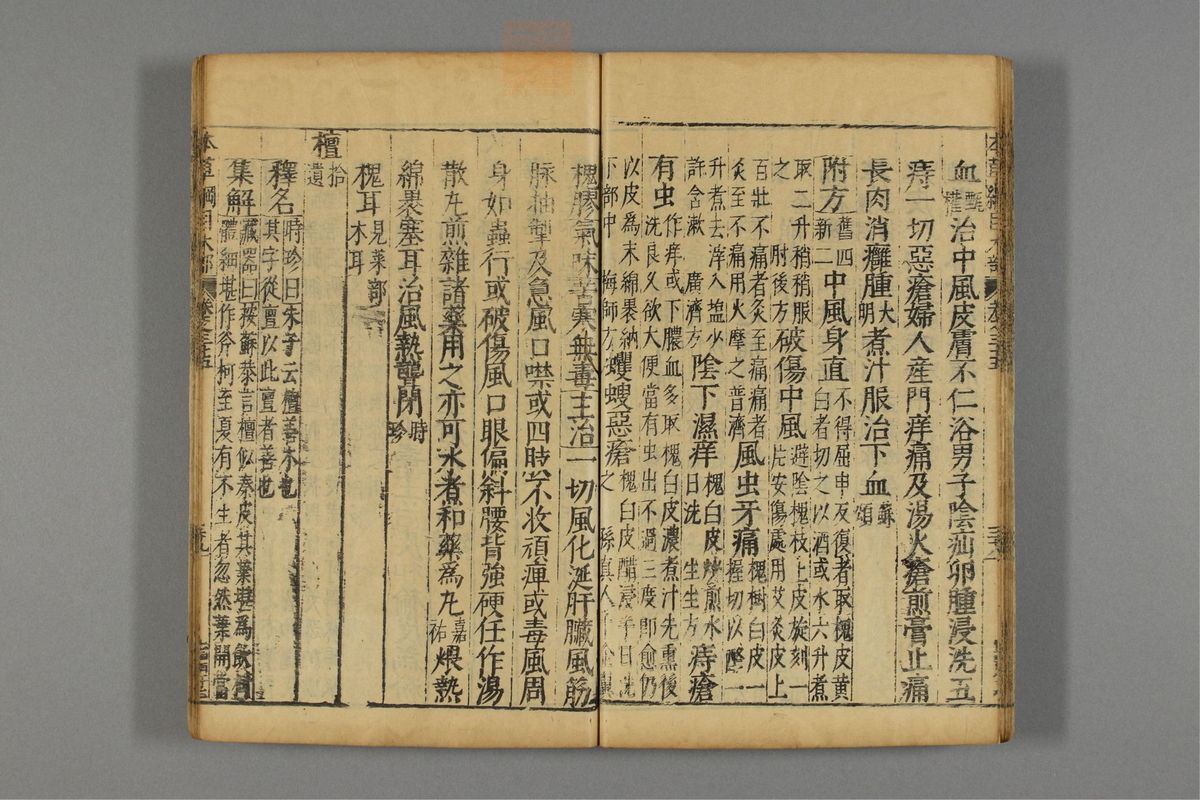 血甄權治中風皮膚不仁浴男子陰疝卵腫浸洗五
痔一切惡瘡婦人産門痒痛及湯火瘡煎膏止痛
長肉消癰腫大明煮汁服治下血蘇頌
附方舊四新二中風身直不得屈申反復者取槐皮黃白者切之以酒或水六升煮
取二升稍稍服之 肘後方破傷中風避陰槐枝上皮旋刻一片安傷處用艾灸皮上
百壯不痛者灸至痛痛者灸至不痛用火摩之普濟風虫牙痛槐樹白皮一握切以酪一
升煮去滓入塩少許含漱 廣濟方陰下濕痒槐白皮炒煎水日洗 生生方痔瘡
有虫作痒或下膿血多取槐白皮濃煮汁先熏後洗良久欲大便當有虫出不過三度即愈仍
以皮爲末綿裹納下部中 梅師方蠼螋惡瘡槐白皮醋浸半日洗之 孫真人
槐膠氣味苦寒無毒主治一切風化涎肝臟風筋
脉抽掣及急風口噤或四肢不收頑痺或毒風周
身如蟲行或破傷風口眼偏斜腰背強硬任作湯
散丸煎雜諸藥用之亦可水煮和藥爲丸嘉祐煨熱
綿裹塞耳治風熱聾閉時珍
槐耳見菜部木耳
檀拾遺
釋名時珍曰朱子云檀善木也其字從亶以此亶者善也
集解藏器曰按蘇恭言檀似秦皮其葉堪爲飲體細堪作斧柯至夏有不生者忽然葉開當
本草綱目木部 卷之三五